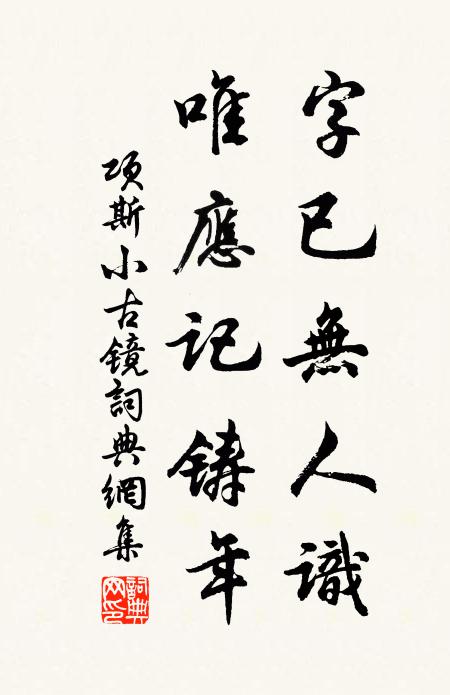 字已無人識
唯應記鑄年
项斯小古镜詞典網集
詞典網印